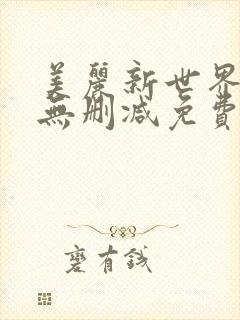 美麗新世界
無刪減免費
蹇有錢